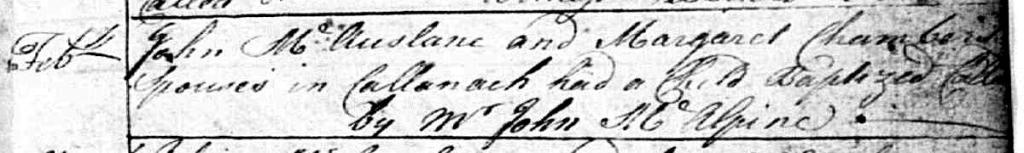 Feb 4 John McAuslane and Margaret Chambers
Spouses in Callanach had a Child Baptized
by Mr John McAlpine